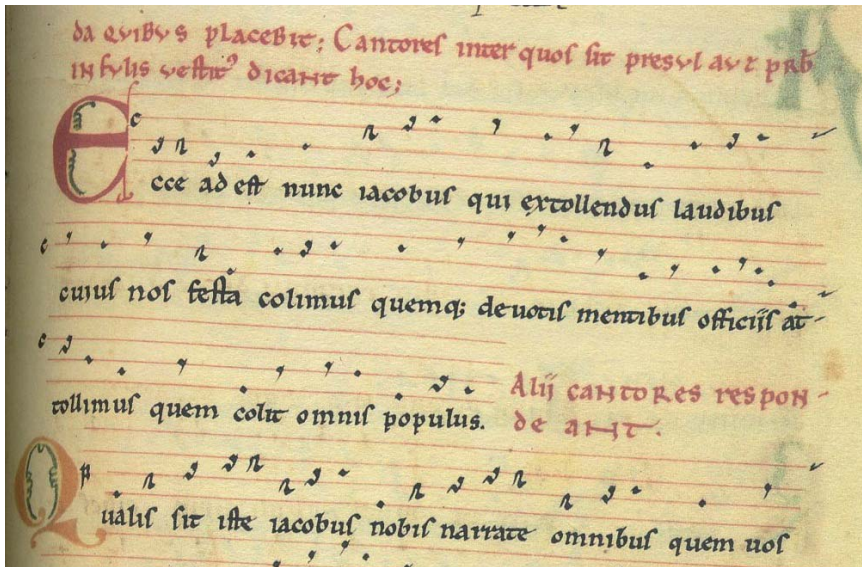 da quibus placebit; Cantores inter quos sit presul aut prb̄
infulis vestit⁹ dicant hoc;
Ecce adest nunc iacobus qui extollendus laudibus
cuius nos festa colimus quemq; deuotis mentibus officiis at-
tollimus quem colit omnis populus. Alii cantores respon-
deant.
Qualis sit iste iacobus nobis narrate omnibus quem uos